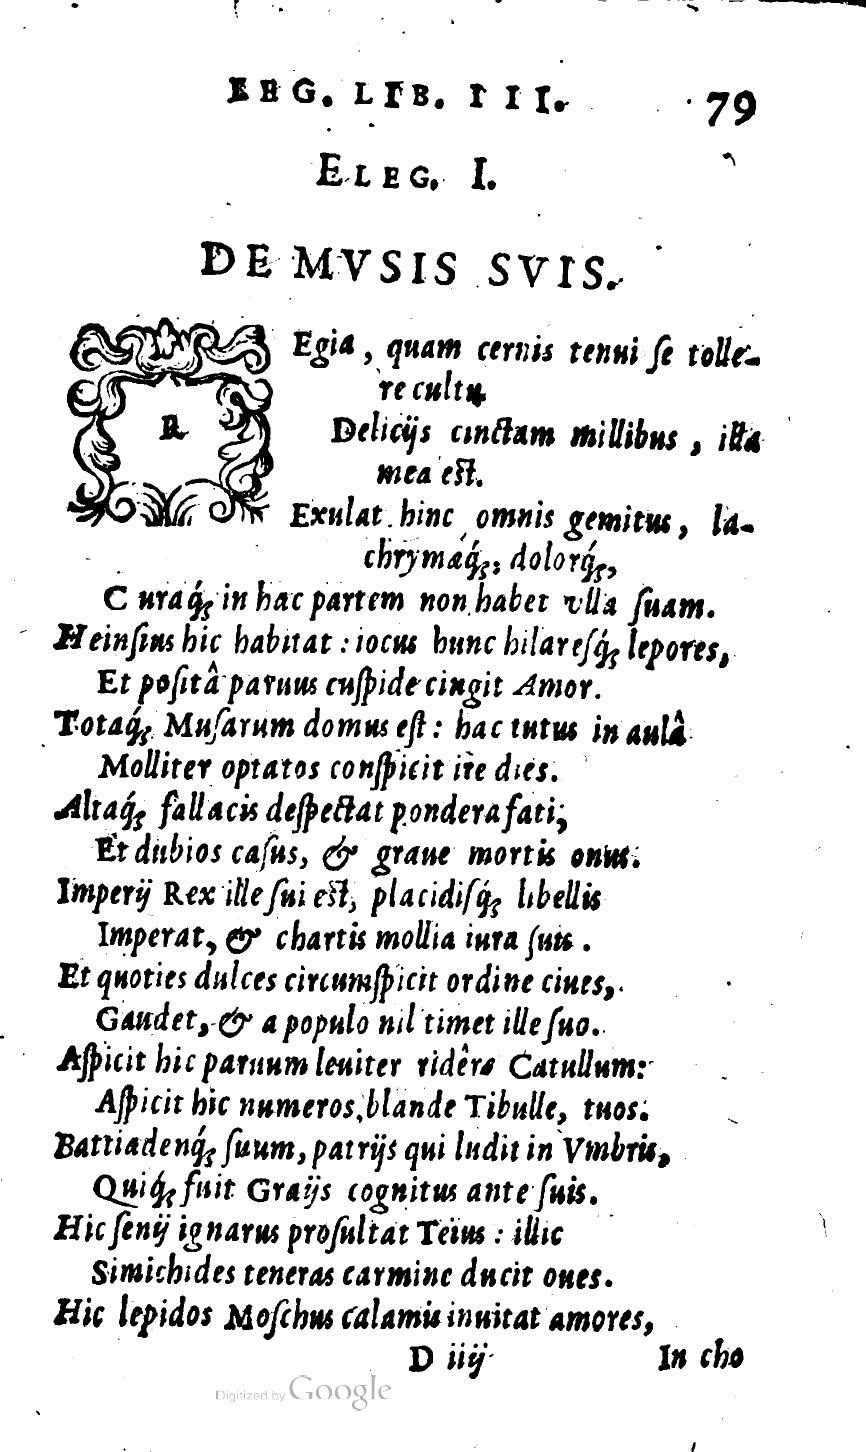 ELEG. LIB. III. 79
ELEG. I.
DE MVSIS SVIS.
REgia, quam cernis tenui ſe tolle-
re cultu
Delicijs cinctam millibus, illa
mea eſt.
Exulat hinc omnis gemitus, la-
chrymaq́;, dolorq́;,
Curaq́; in hac partem non habet vlla ſuam.
Heinſius hic habitat: iocus hunc hilareſq́; lepores,
Et poſitâ paruus cuſpide cingit Amor.
Totaq́; Muſarum domus eſt: hac tutus in aulâ
Molliter optatos conſpicit ire dies.
Altaq́; fallacis deſpectat pondera fati,
Et dubios caſus, & graue mortis onus.
Imperij Rex ille ſui eſt, placidiſq́; libellis
Imperat, & chartis mollia iura ſuis.
Et quoties dulces circumſpicit ordine ciues,
Gaudet, & a populo nil timet ille ſuo.
Aſpicit hic paruum leuiter ridêre Catullum:
Aſpicit hic numeros, blande Tibulle, tuos.
Battiadenq́; ſuum, patrijs qui ludit in Vmbris,
Quiq́; fuit Graijs cognitus ante ſuis.
Hic ſenij ignarus proſultat Teius: illic
Simichides teneras carmine ducit oues.
Hic lepidos Moſchus calamis inuitat amores,
D iiij In cho
Digitized by Google